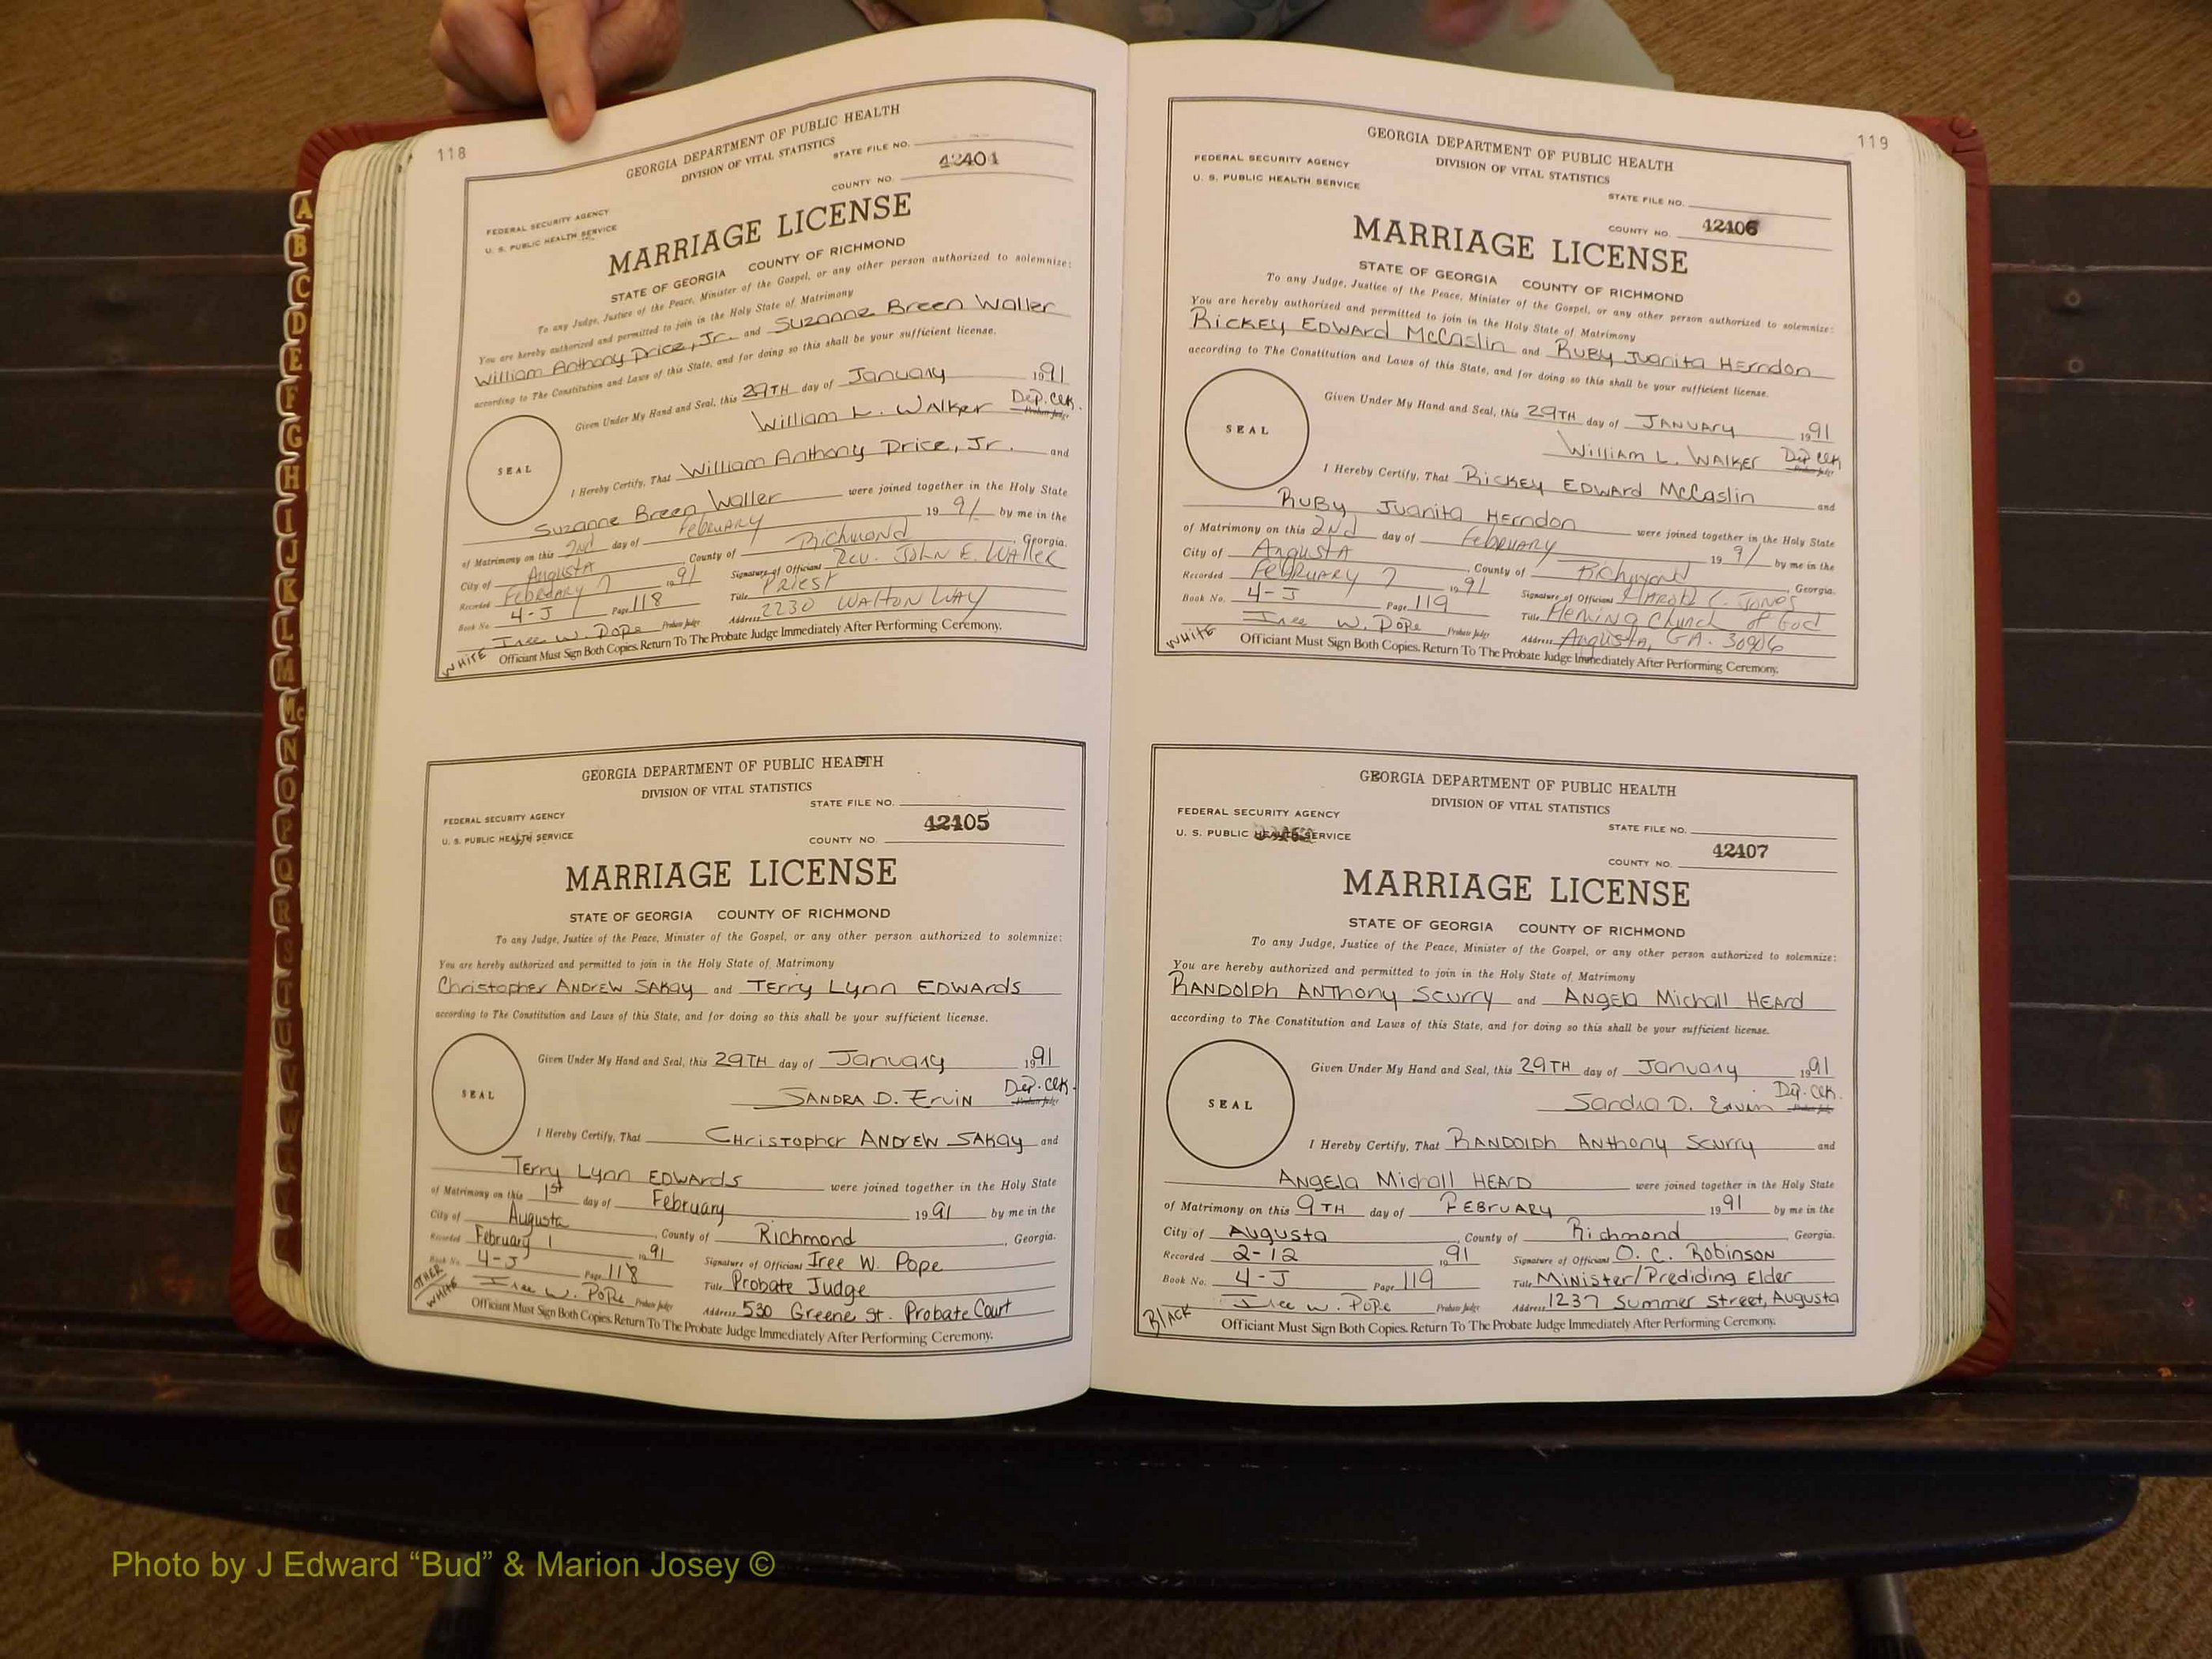 118
GEORGIA DEPARTMENT OF PUBLIC HEALTH
DIVISION OF VITAL STATISTICS
STATE FILE NO.
42404
COUNTY NO.
FEDERAL SECURITY AGENCY
U. S. PUBLIC HEALTH SERVICE
MARRIAGE LICENSE
STATE OF GEORGIA COUNTY OF RICHMOND
To any Judge, Justice of the Peace, Minister of the Gospel, or any other person authorized to solemnize:
You are hereby authorized and permitted to join in the Holy State of Matrimony
William Anthony Price, Jr. and Suzanne Breen Waller
according to The Constitution and Laws of this State, and for doing so this shall be your sufficient license.
Given Under My Hand and Seal, this 29TH day of January 1991
William L. Walker Dep. Clk. Probate Judge
SEAL
I Hereby Certify, That William Anthony Price, Jr. and
Suzanne Breen Waller were joined together in the Holy State
of Matrimony on this 2nd day of February 1991 by me in the
City of Augusta, County of Richmond, Georgia.
Recorded February 7 1991 Signature of Official Rev. John E. Waller
Book No. 4-J Page 118 Title Priest
Iree W. Pope Probate Judge Address 2230 Walton Way
WHITE Officiant Must Sign Both Copies. Return To The Probate Judge Immediately After Performing Ceremony.
GEORGIA DEPARTMENT OF PUBLIC HEALTH
DIVISION OF VITAL STATISTICS
STATE FILE NO.
FEDERAL SECURITY AGENCY
42405
U. S. PUBLIC HEALTH SERVICE
COUNTY NO.
MARRIAGE LICENSE
STATE OF GEORGIA COUNTY OF RICHMOND
To any Judge, Justice of the Peace, Minister of the Gospel, or any other person authorized to solemnize:
You are hereby authorized and permitted to join in the Holy State of Matrimony
Christopher ANDREW SAKAY and TERRY LYNN EDWARDS
according to The Constitution and Laws of this State, and for doing so this shall be your sufficient license.
Given Under My Hand and Seal, this 29TH day of January 1991
SANDRA D. ERVIN Dep. Clk. Probate Judge
SEAL
I Hereby Certify, That CHristopher ANDREW SAKAY and
TERRY LYNN EDWARDS were joined together in the Holy State
of Matrimony on this 1st day of February 1991 by me in the
City of Augusta, County of Richmond, Georgia.
Recorded February 1 1991 Signature of Official Iree W. Pope
Book No. 4-J Page 118 Title Probate Judge
Iree W. Pope Probate Judge Address 530 Greene St. Probate Court
OTHER
WHITE
Officiant Must Sign Both Copies. Return To The Probate Judge Immediately After Performing Ceremony.
119
GEORGIA DEPARTMENT OF PUBLIC HEALTH
FEDERAL SECURITY AGENCY
DIVISION OF VITAL STATISTICS
U. S. PUBLIC HEALTH SERVICE
STATE FILE NO.
42406
COUNTY NO.
MARRIAGE LICENSE
STATE OF GEORGIA COUNTY OF RICHMOND
To any Judge, Justice of the Peace, Minister of the Gospel, or any other person authorized to solemnize:
You are hereby authorized and permitted to join in the Holy State of Matrimony
RICKEY EDWARD McCaslin and RUBY Juanita HERNDON
according to The Constitution and Laws of this State, and for doing so this shall be your sufficient license.
Given Under My Hand and Seal, this 29TH day of JANUARY 1991
William L. Walker Dep Clk Probate Judge
SEAL
I Hereby Certify, That RICKEY EDWARD McCaslin and
RUBY Juanita Herndon were joined together in the Holy State
of Matrimony on this 2nd day of February 1991 by me in the
City of Augusta, County of Richmond, Georgia.
Recorded February 7 1991 Signature of Official Harold C. Jones
Book No. 4-J Page 119 Title Fleming Church of God
Iree W. Pope Probate Judge Address Augusta, GA. 30906
WHITE Officiant Must Sign Both Copies. Return To The Probate Judge Immediately After Performing Ceremony.
GEORGIA DEPARTMENT OF PUBLIC HEALTH
DIVISION OF VITAL STATISTICS
FEDERAL SECURITY AGENCY
STATE FILE NO.
U. S. PUBLIC HEALTH SERVICE
42407
COUNTY NO.
MARRIAGE LICENSE
STATE OF GEORGIA COUNTY OF RICHMOND
To any Judge, Justice of the Peace, Minister of the Gospel, or any other person authorized to solemnize:
You are hereby authorized and permitted to join in the Holy State of Matrimony
RANDOLPH ANTHONY SCURRY and ANGELA Michall HEARD
according to The Constitution and Laws of this State, and for doing so this shall be your sufficient license.
Given Under My Hand and Seal, this 29TH day of January 1991
Sandra D. Ervin Dep. Clk. Probate Judge
SEAL
I Hereby Certify, That RANDOLPH ANTHONY SCURRY and
ANGELA Michall HEARD were joined together in the Holy State
of Matrimony on this 9TH day of FEBRUARY 1991 by me in the
City of Augusta, County of Richmond, Georgia.
Recorded 2-12 1991 Signature of Official O. C. Robinson
Book No. 4-J Page 119 Title Minister/Prediding Elder
Iree W. Pope Probate Judge Address 1237 Summer Street, Augusta
BLACK Officiant Must Sign Both Copies. Return To The Probate Judge Immediately After Performing Ceremony.
A
B
C
D
E
F
G
H
I
J
K
L
M
Mc
N
O
P
Q
R
S
T
U
Photo by J Edward “Bud” & Marion Josey ©